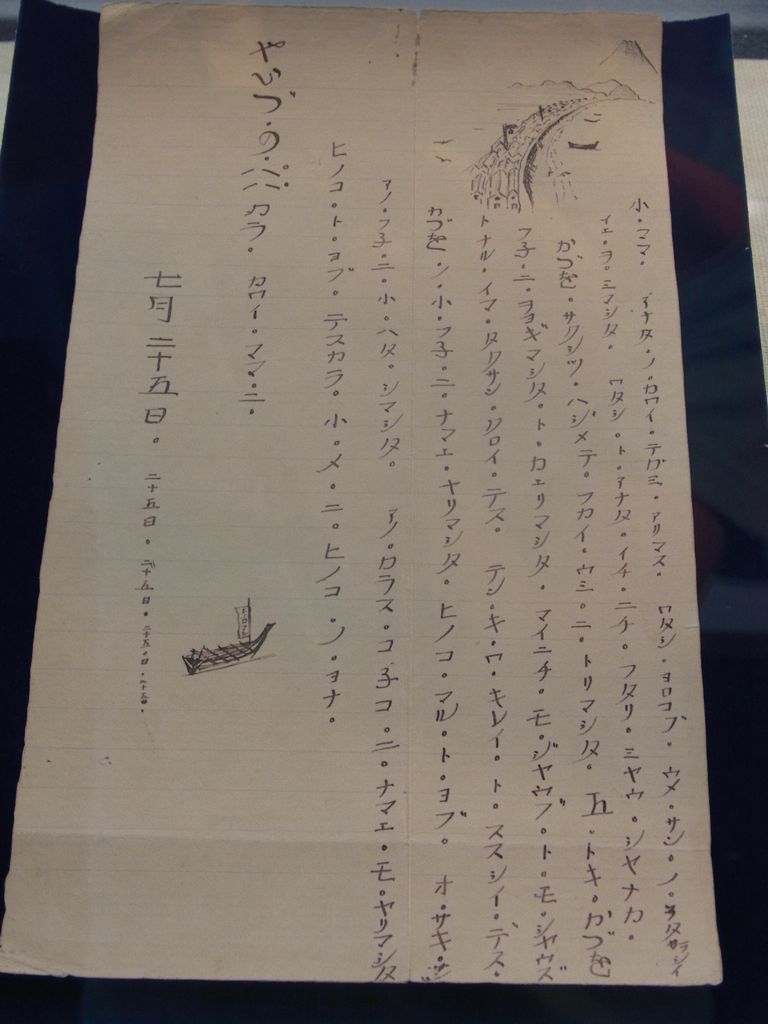 小・ママ・アナタ・ノ・カワイ・テガミ・アリマス。ワタシ・ヨロコブ・ウメ・サン・ノ・アタラシイ
イエ・ヲ・ミマシタ。ワタシ・ト・アナタ・イチ・ニチ・フタリ・ミヤウ・シヤナカ。
かづを・サクジツ・ハジメテ・フカイ・ウミ・ニ・トリマシタ。五・トキ・かづを
フ子・ニ・ヲヨギマシタ・ト・カエリマシタ。マイニチ・モ・ジヤウブ・ト・モ・ジヤウズ
トナル・イマ・タクサン・クロイ・デス。テンキ・ワ・キレイ・ト・ススシイ・デス。
かづを・ノ・小・フ子・ニ・ナマエ・ヤリマシタ。ヒノコ・マル・ト・ヨブ。オ・サキ・サン
アノ・フ子・ニ・小・ハタ・シマシタ。アノ・カラス・コ・子コ・ニ・ナマエ・モ・ヤリマシタ
ヒノコ・ト・ヨブ・デスカラ・小・メ・ニ・ヒノコ・ノ・ヨナ。
やいづ・の・パパ・カラ・カワイ・ママ・ニ。
七月二十五日。二十五日。二十五日。二十五日。二十五日。